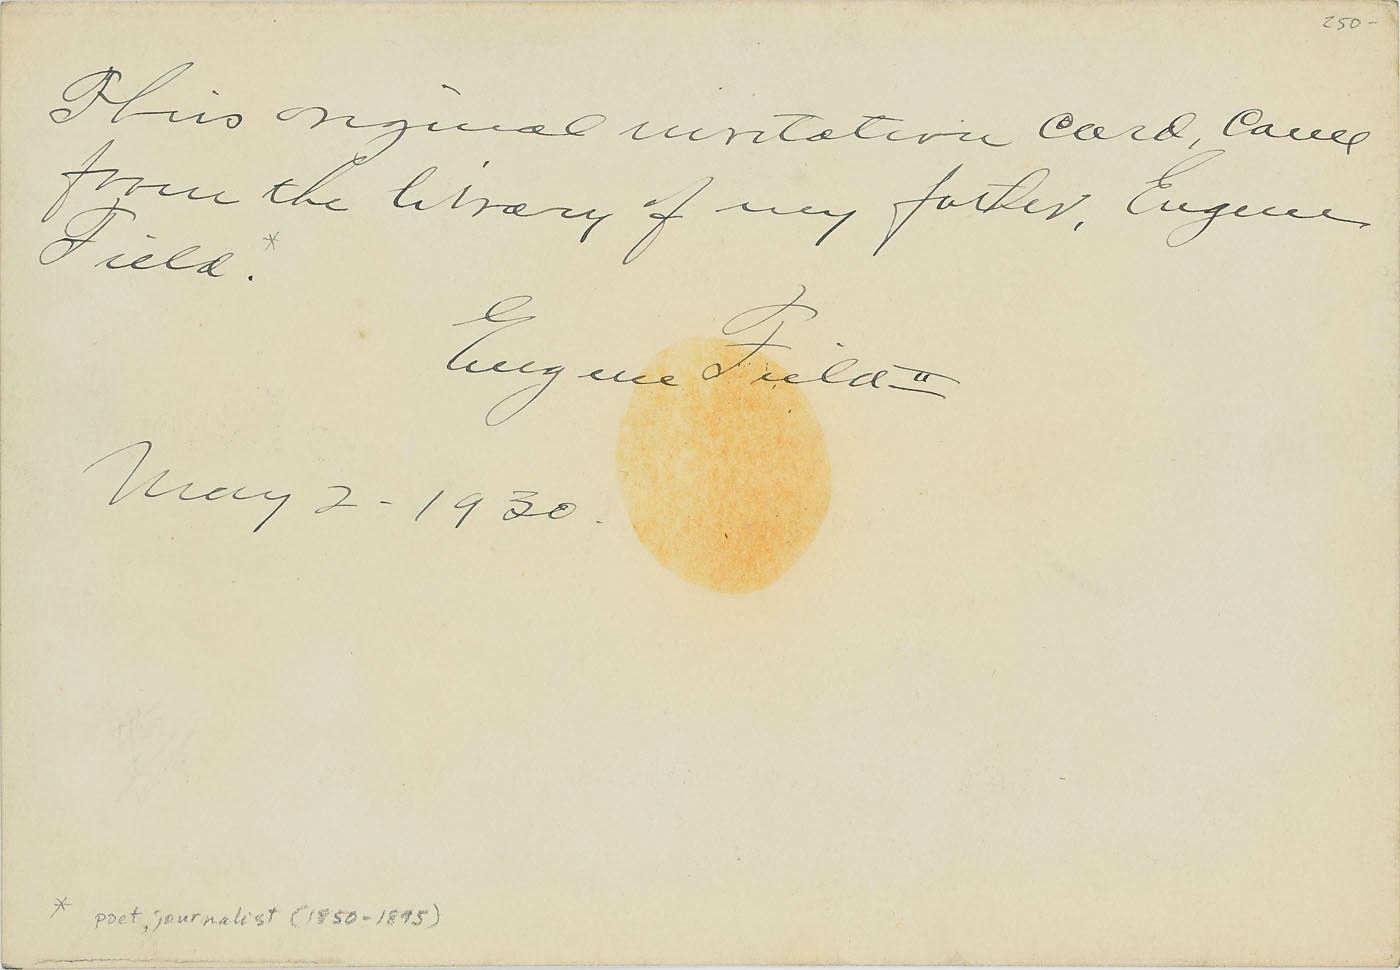 250-
This original invitation card, came
from the library of my father, Eugene
Field.*
Eugene Field II
May 2 - 1930.
* poet, journalist (1850-1895)